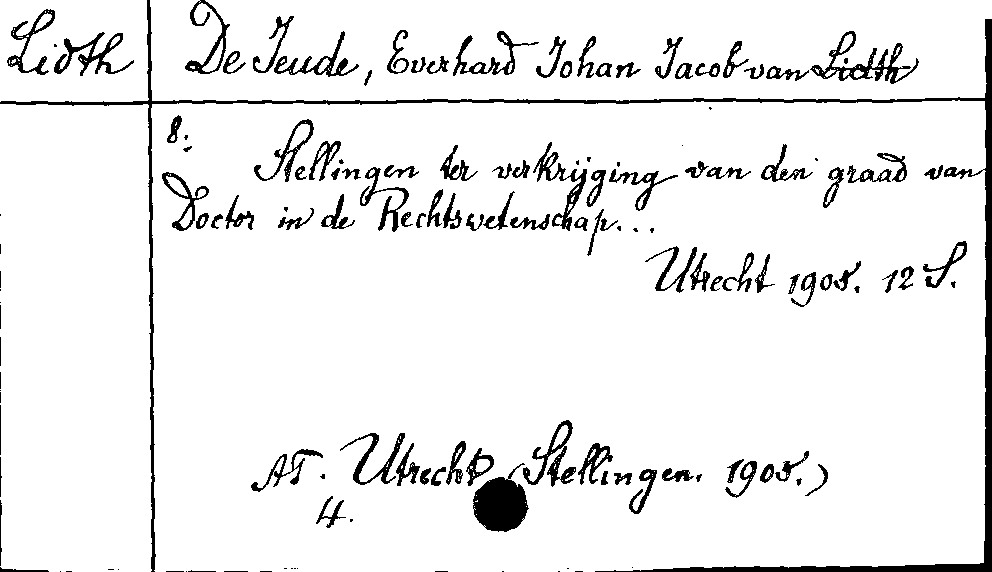 Lidth De Jeude, Everhard Johan Jacob van Lidth
8.
Stellingen ter verkrijging van den graad van
Doctor in de Rechtswetenschap...
Utrecht 1905. 12 S.
AT. Utrecht (Stellingen. 1905.)
4.